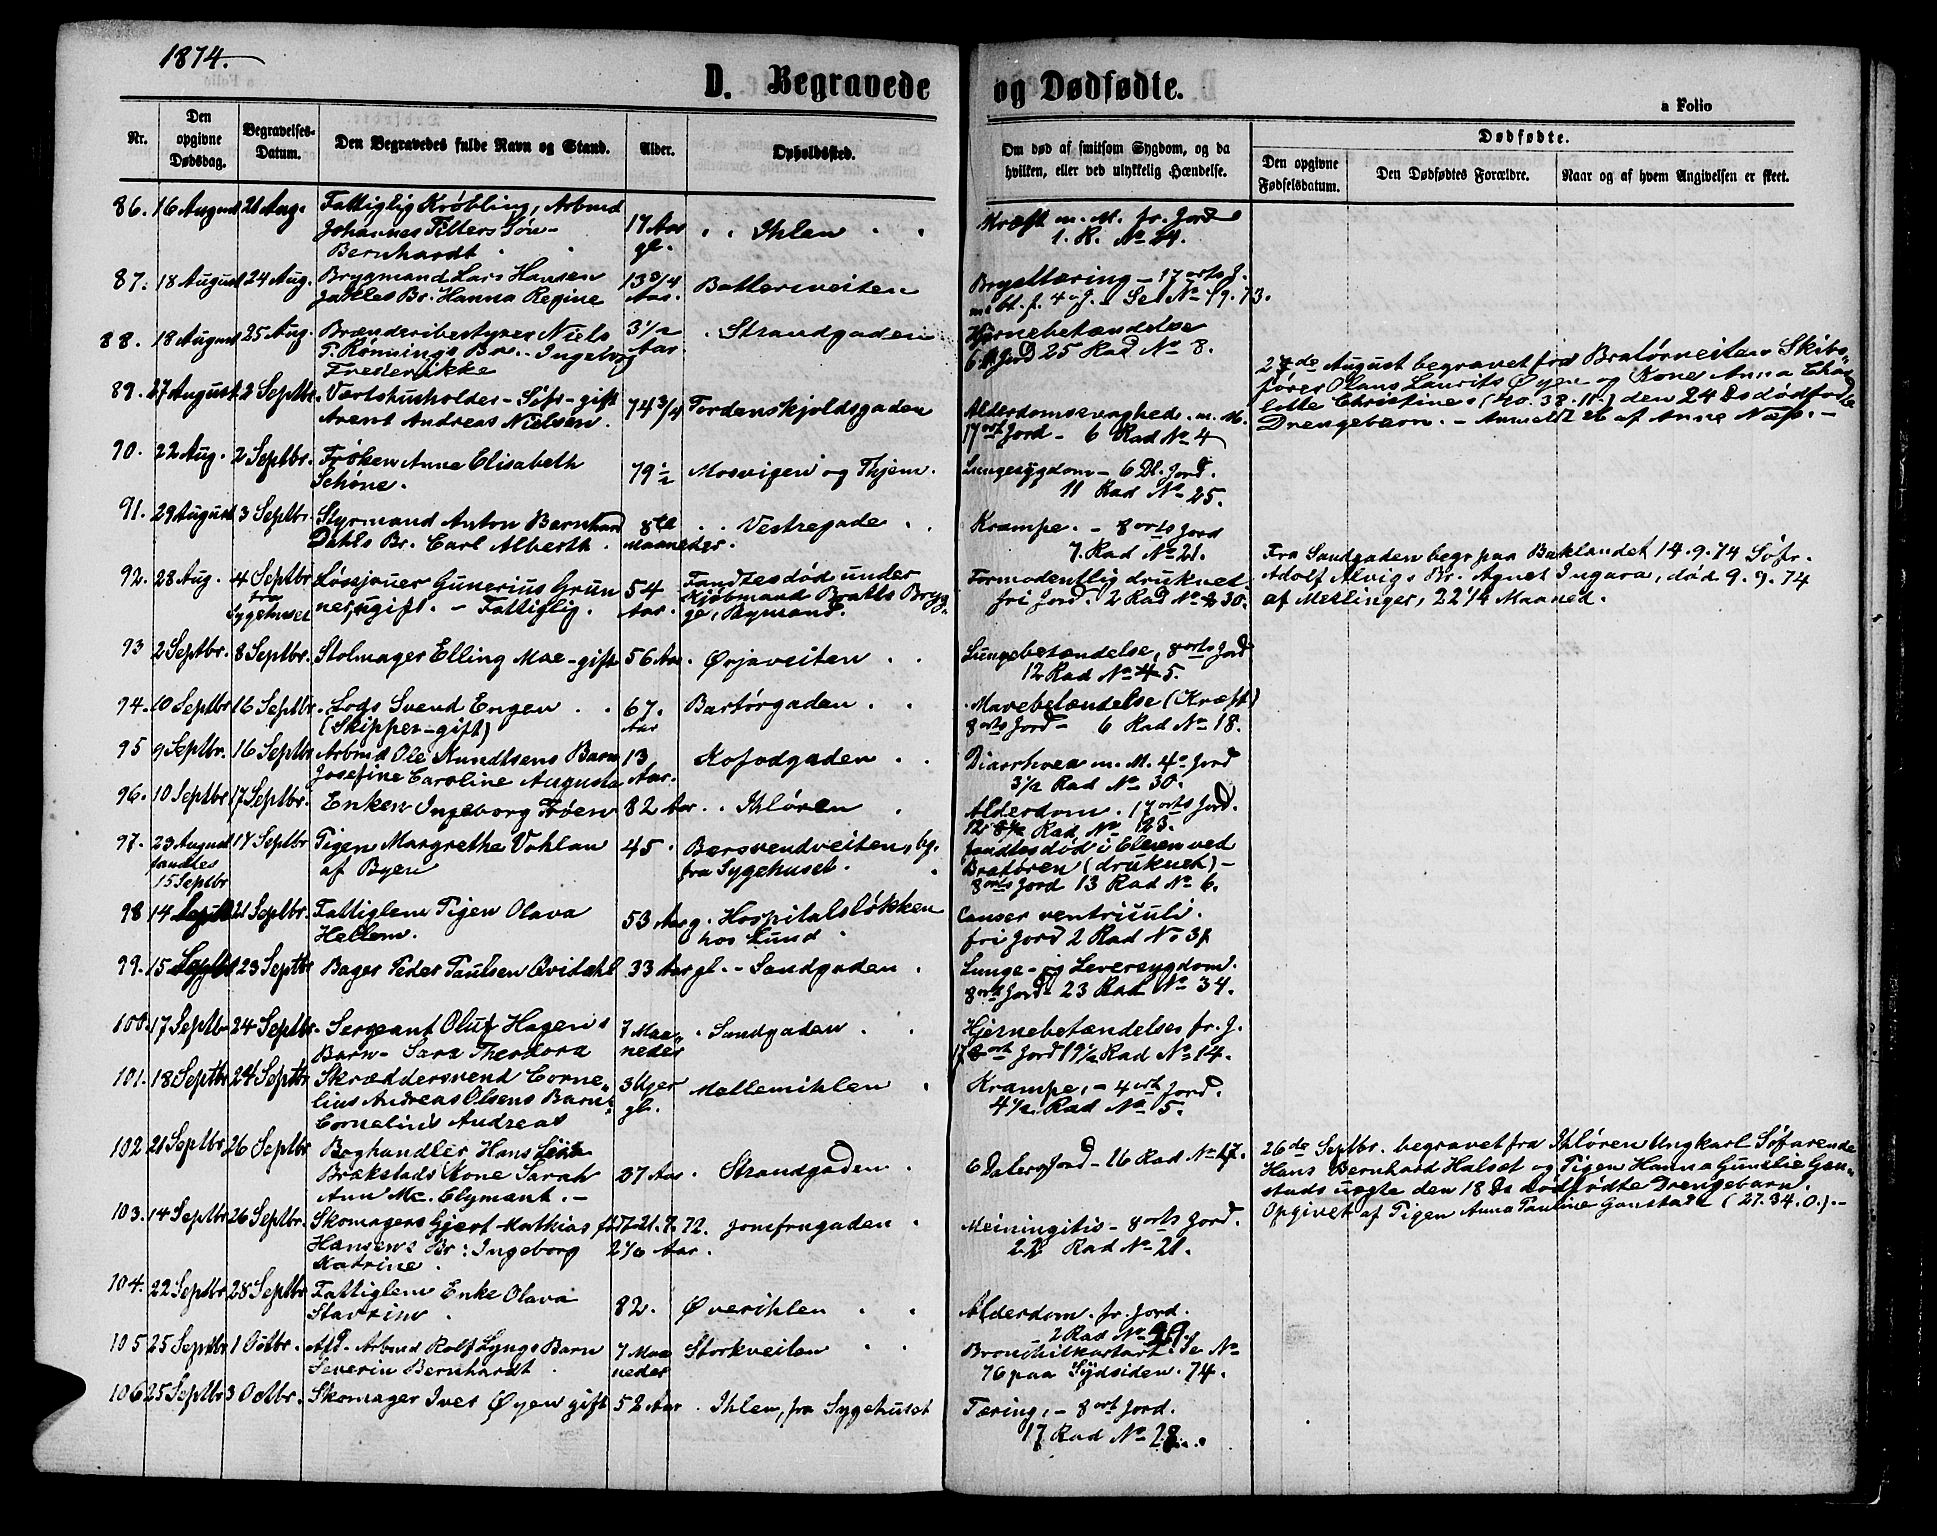 1874.
D. Begravede og Dødfødte.
a Folio
Nr.
Den opgivne Dødsdag.
Begravelses-Datum.
Den Begravedes fulde Navn og Stand.
Alder.
Opholdssted.
Om død af smitsom Sygdom, og da hvilken, eller ved ulykkelig Hændelse.
Dødfødte.
Den opgivne Fødselsdatum.
Den Dødfødtes Forældre.
Naar og af hvem Angivelsen er skeet.
86. 16 August 21 Aug. Fattiglig Krøbling, Arbmd 17 Aar Ihlen Kræft m. M. fr. Jord
Johannes Petters Søn gl. 1. R. No 24.
Bernhardt
87. 18 August 24 Aug. Brygmand Lars Hansen 13 3/4 Battersveiten Brysttæring – 17 orts J.
Jakles Br. Hanna Regine Aar. Se No 19. 73.
88. 18 August 25 Aug. Brænderibestyrer Niels 3 1/2 Strandgaden Hjernebetændelse
P. Rønnings Br. Ingeborg Aar 6 D Jord 25 Rad No 8.
Frederikke
89. 27 August 2 Septbr. Værtshusholder – Søfr – gift 74 3/4 Tordenskjoldsgaden Alderdomssvaghed. m. M.
Arent Andreas Nielsen. 17 ort Jord – 6 Rad No 4
90. 22 Aug. 2 Septbr. Frøken Anne Elisabeth 79 1/2 Mosvigen og Thjem. Lungesygdom – 6 Dl. Jord.
Schøne. 11 Rad No 25.
91. 29 August 3 Septbr. Styrmand Anton Bernhard 8te Vestregade Krampe. – 8 orts Jord
Dahls Br. Carl Alberth. Maaneder. 7. Rad No 21.
92. 28 Aug. 4 Septbr Løssjouer Gunerius Grun 54 Fandtes død under Formodentlig druknet
fra Sygehuset ner, ugift. – Fattiglig. Aar. Kjøbmand Bratts Brygge, Bymand. fri Jord. 2 Rad No 30.
93 2 Septbr. 8 Septbr. Stolmager Elling Moe – gift 56 Aar. Ørjaveiten Lungebetændelse, 8 orts Jord
12 Rad No 5.
94. 10 Septbr 16 Septbr. Lods Svend Engen 67. Bartørgaden Mavebetændelse (Kræft)
(Skipper – gift) Aar 8 orts Jord – 6 Rad No 18.
95 9 Septbr. 16 Septbr Arbmd Ole Knudtsens Barn 13 Kofodgaden Diaorhoea m. M. 4 o Jord
Josefine Caroline Augusta Aar. 3 1/2 Rad No 30.
96. 10 Septbr 17 Septbr. Enken Ingeborg Frøen 82 Aar Ihløren Alderdom. 17 orts Jord.
12 Rad No 123.
97. 23 August 18 Septbr Pigen Margrethe Vohlan 45 Bersvendveiten, bg. fandtes død i Elven ved
fandtes 15 Septbr af Byen fra Sygehuset. Bratøren (druknet) –
8 orts Jord 13 Rad No 6.
98 14 Septbr 21 Septbr. Fattiglem Pigen Olava 53 Aar g. Hospitalsløkken Canser ventriculi.
Hellem. hos Lund fri Jord 2 Rad No 31
99. 15 Septbr 23 Septbr Bager Peder Paulsen Qvidahl 33 Aar gl. – Sandgaden Lunge- og Leversygdom.
8 ort Jord – 23 Rad No 34.
100. 17 Septbr 24 Septbr. Sergeant Oluf Hagens 7 Maa- Sandgaden Hjernebetændelse fr. J.
Barn – Sara Theodora neder 17 ort Jord 19 1/2 Rad No 14.
101. 18 Septbr 24 Septbr Skræddersvend Corne- 3 Uger Mellemihlen Krampe, – 4 ort Jord.
lius Andreas Olsens Barn gl. 4 1/2 Rad No 5.
Cornelius Andreas
102 21 Septbr 26 Septbr Boghandler Hans Leik 37 Aar Strandgaden 6 Dalers Jord – 26 Rad No 17.
Brækstads Kone Sarah
Ann Mc. Clymant. –
103. 14 Septbr 26 Septbr. Skomagers Gjert Mathias fdt 21. 7. 72. Jomfrugaden Meiningitis – 8 orts Jord.
Hansens Br: Ingeborg 2 1/6 Aar. 22 Rad No 21.
Katrine.
104. 22 Septbr 28 Septbr Fattiglem Enke Olava 82. Øverihlen Alderdom. fr. Jord.
2 Rad No 29.
105 25 Septbr 1 Octbr. Afd. Arbmd Rolf Lyngs Barn 7 Maa Storkveiten Bronchitkatarr. Se No
Severin Bernhardt neder 76 paa Sydsiden. 74.
106 25 Septbr 3 Octbr. Skomager Iver Øyen gift 52 Aar Ihlen, fra Sygehuset Tæring, – 8 ort Jord.
17 Rad No 28
27de August begravet fra Bratørveiten Skibs-
fører Olaus Laurits Øyen og Kone Anna Char
lotte Christines (40. 38. 11.) den 24 Ds dødfødte
Drengebarn. – Anmeldt 26 af Anne Næss. –
Fra Sandgaden begr paa Baklandet 14. 9. 74 Søfr.
Adolf Alvigs Br. Agnet Ingara, død 9. 9. 74
af Messlinger, 22 1/4 Maaned.
26de Septbr. begravet fra Ihløren Ungkarl Søfarende
Hans Bernhard Halset og Pigen Hanna Gunelie Gan-
stads uegte den 18 Ds dødfødte Drengebarn.
Opgivet af Pigen Anna Pauline Ganstad (27. 34. 0.). –